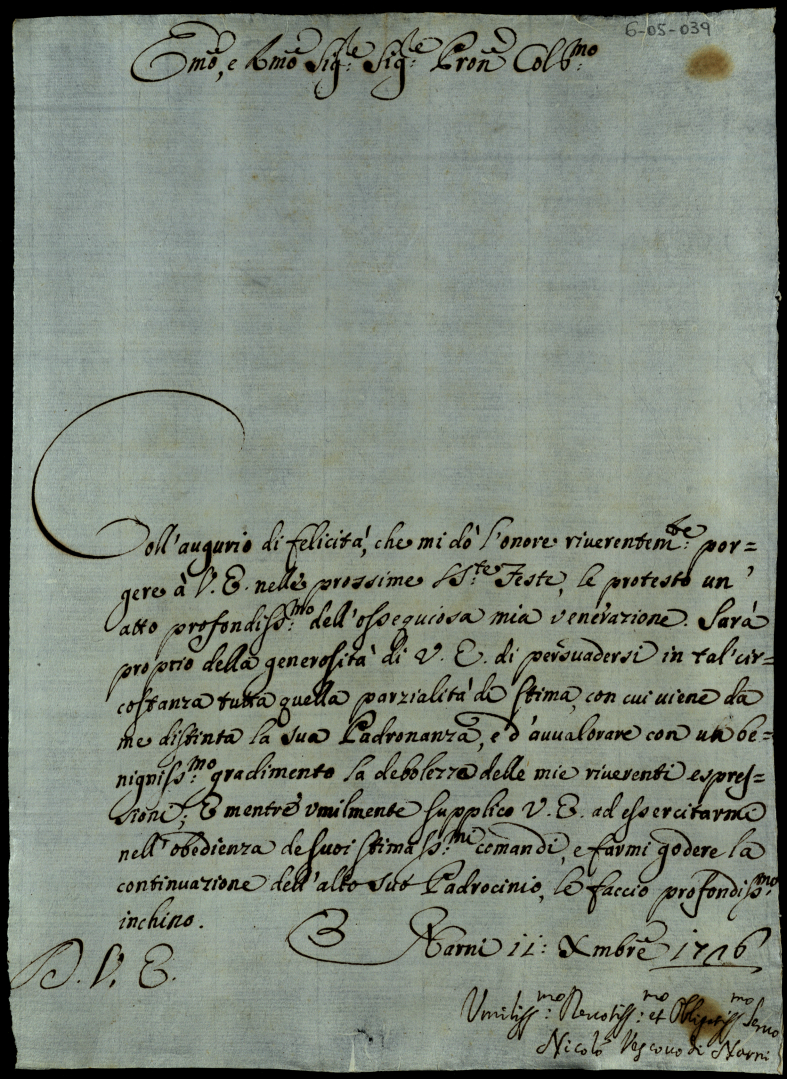 6-05-039
Emo, e Rmo Sig.re Sig.re Pron Colmo
Coll'augurio di felicità, che mi dò l'onore riverentem.te por=
gere à V. E. nelle prossime SS.te Feste, le protesto un'
atto profondiss.mo dell'ossequiosa mia venerazione. Sarà
proprio della generosità di V. E. di persuadersi in tal'cir=
costanza tutta quella parzialità di stima, con cui viene da
me distinta la sua Padronanza, e d'avvalorare con un be=
nigniss.mo gradimento la debolezza delle mie riverenti espres=
sioni; E mentre umilmente supplico V. E. ad essercitarmi
nell'obedienza de suoi stimatiss.mi comandi, e farmi godere la
continuazione dell'alto suo Padrocinio, le faccio profondiss.mo
inchino.
Narni 11: Xmbre
D. V. E.
Umiliss.mo Devotiss.mo et Obligatiss.mo Servo
Nicolò Vescovo di Narni